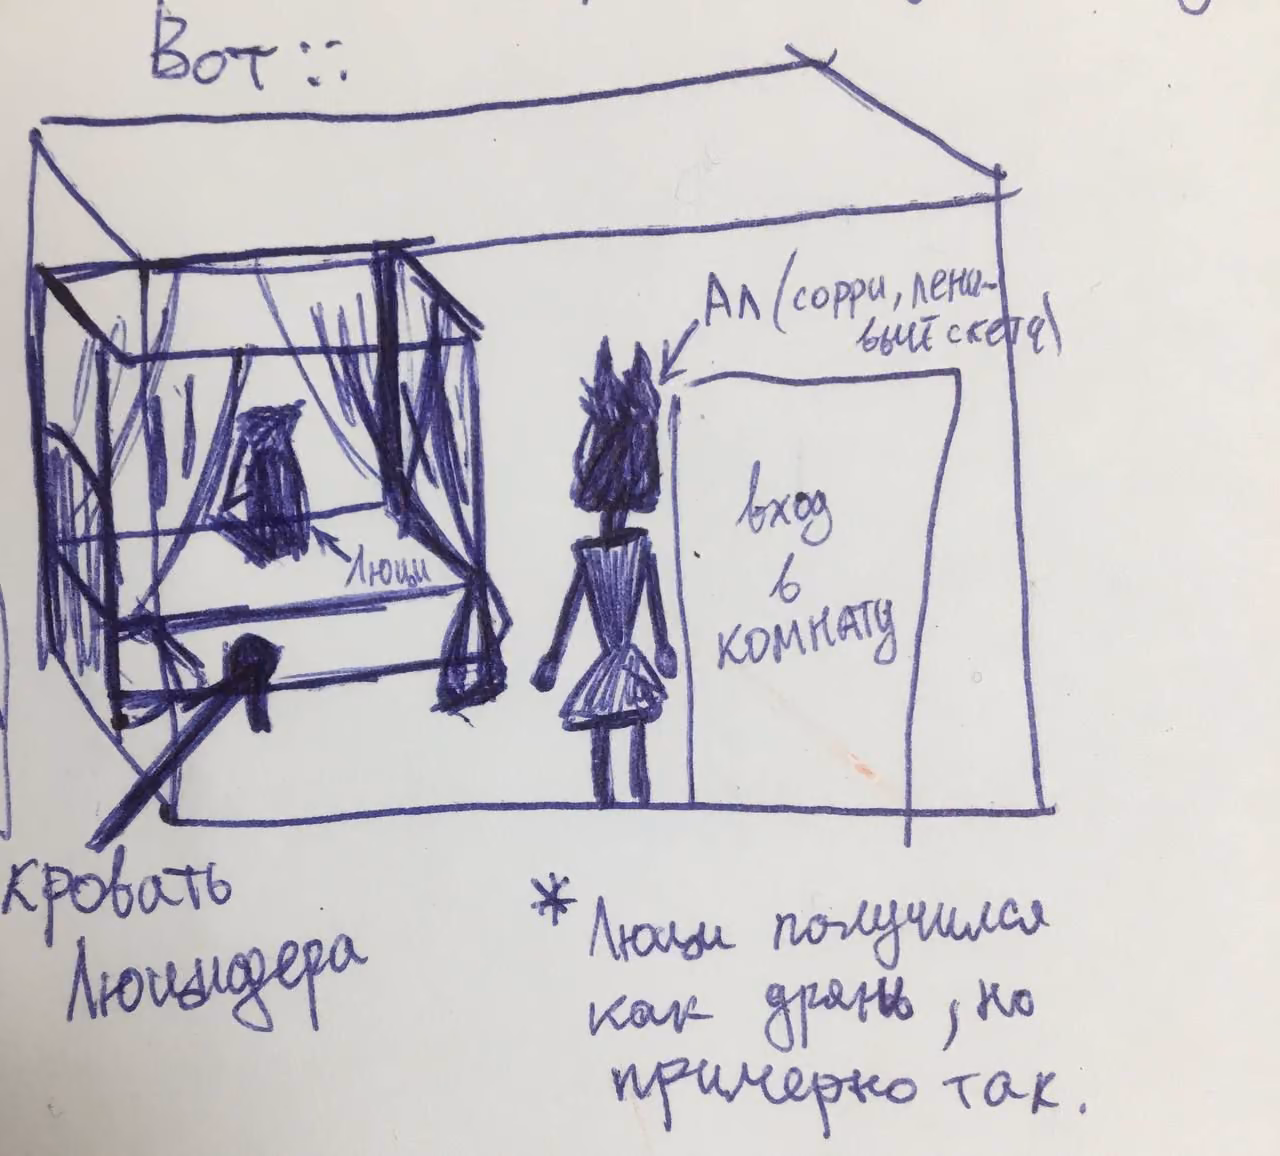 Вот ::
Ал (сорри, лени-
вый скетч)
вход
в
комнату
Люци
кровать
Люцифера
* Люци получился
как дрянь, но
примерно так.